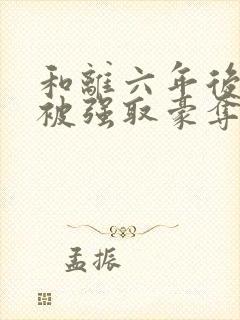 和離六年後
被强取豪奪
孟振